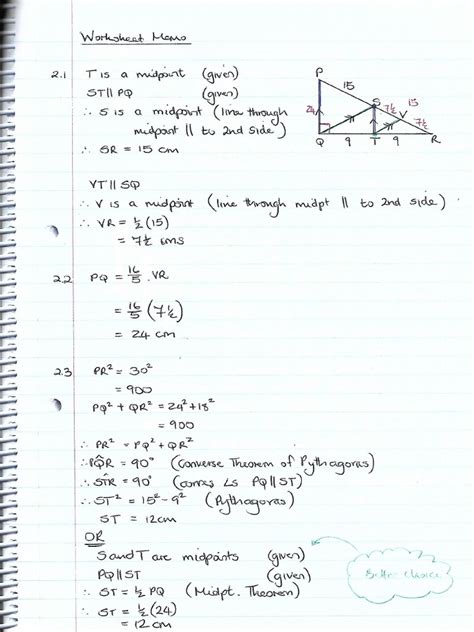 Worksheet Memo
2.1 T is a midpoint (given)
ST || PQ (given)
∴ S is a midpoint (line through
midpoint || to 2nd side)
∴ SR = 15 cm
P
15
S
15
7½
V
24
7½
Q 9 T 9 R
VT || SQ
∴ V is a midpoint (line through midpt || to 2nd side)
∴ VR = ½(15)
= 7½ cms
2.2 PQ = 16/5 . VR
= 16/5 (7½)
= 24 cm
2.3 PR² = 30²
= 900
PQ² + QR² = 24² + 18²
= 900
∴ PR² = PQ² + QR²
∴ PQ̂R = 90° (Converse Theorem of Pythagoras)
∴ ST̂R = 90° (corres ∠s PQ || ST)
∴ ST² = 15² - 9² (Pythagoras)
ST = 12cm
OR
S and T are midpoints (given)
PQ || ST (given)
Better choice
∴ ST = ½ PQ (Midpt. Theorem)
∴ ST = ½ (24)
= 12 cm